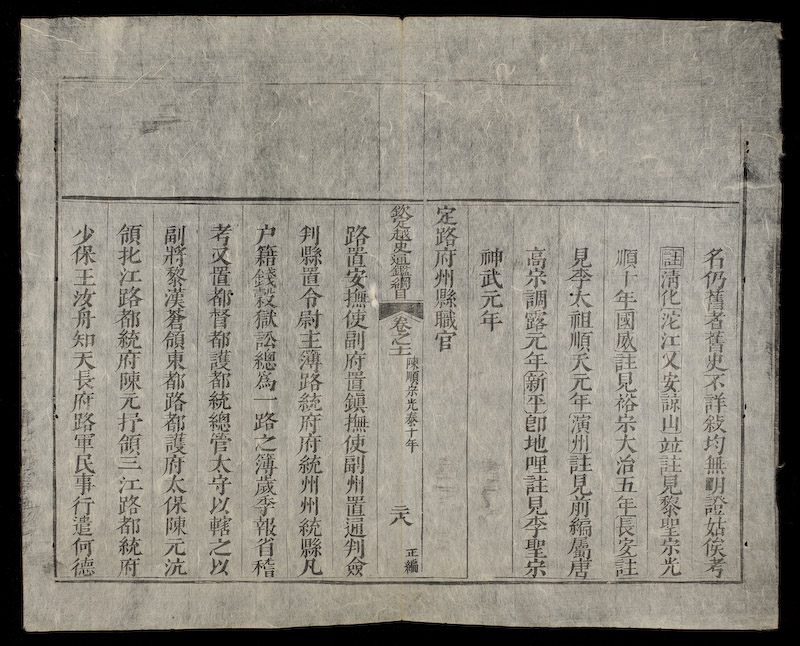 名仍舊者舊史不詳敍均無明證姑俟考
註清化沱江乂安諒山並註見黎聖宗光
順十年國威註見裕宗大治五年長安註
見李太祖順天元年演州註見前編屬唐
高宗調露元年新平卽地哩註見李聖宗
神武元年
定路府州縣職官
欽定越史通鑑綱目 卷之十一 陳順宗光泰十年 二八 正編
路置安撫使副府置鎮撫使副州置通判僉
判縣置令尉主簿路統府府統州州統縣凡
户籍錢穀獄訟總爲一路之簿歲季報省稽
考又置都督都護都統總管太守以轄之以
副將黎漢蒼領東都路都護府太保陳元沆
領北江路都統府陳元抒領三江路都統府
少保王汝舟知天長府路軍民事行遣何德